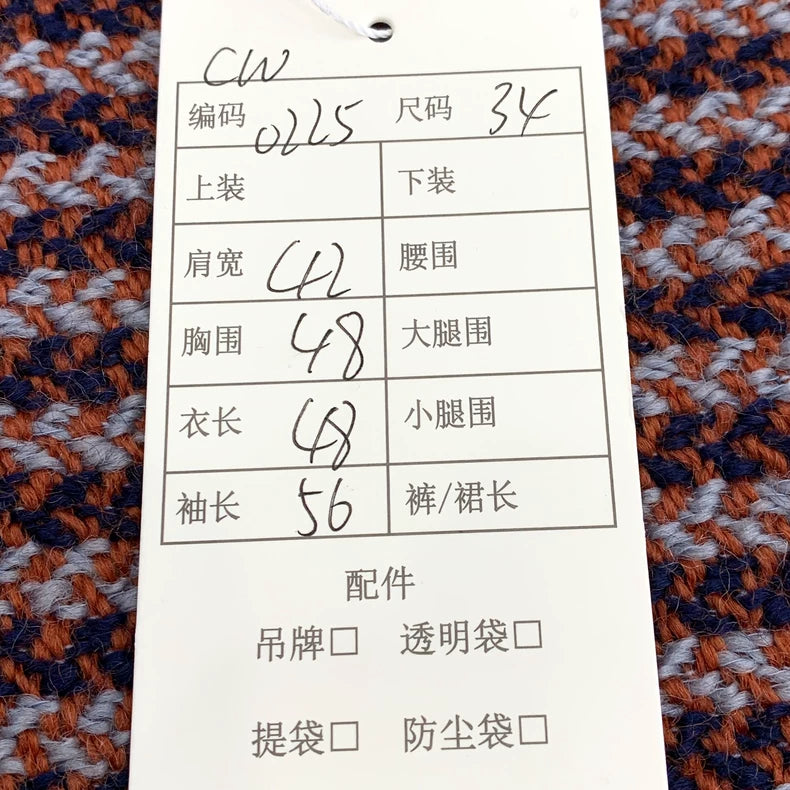 CW
编码 0225 尺码 34
上装 下装
肩宽 42 腰围
胸围 48 大腿围
衣长 48 小腿围
袖长 56 裤/裙长
配件
吊牌□ 透明袋□
提袋□ 防尘袋□